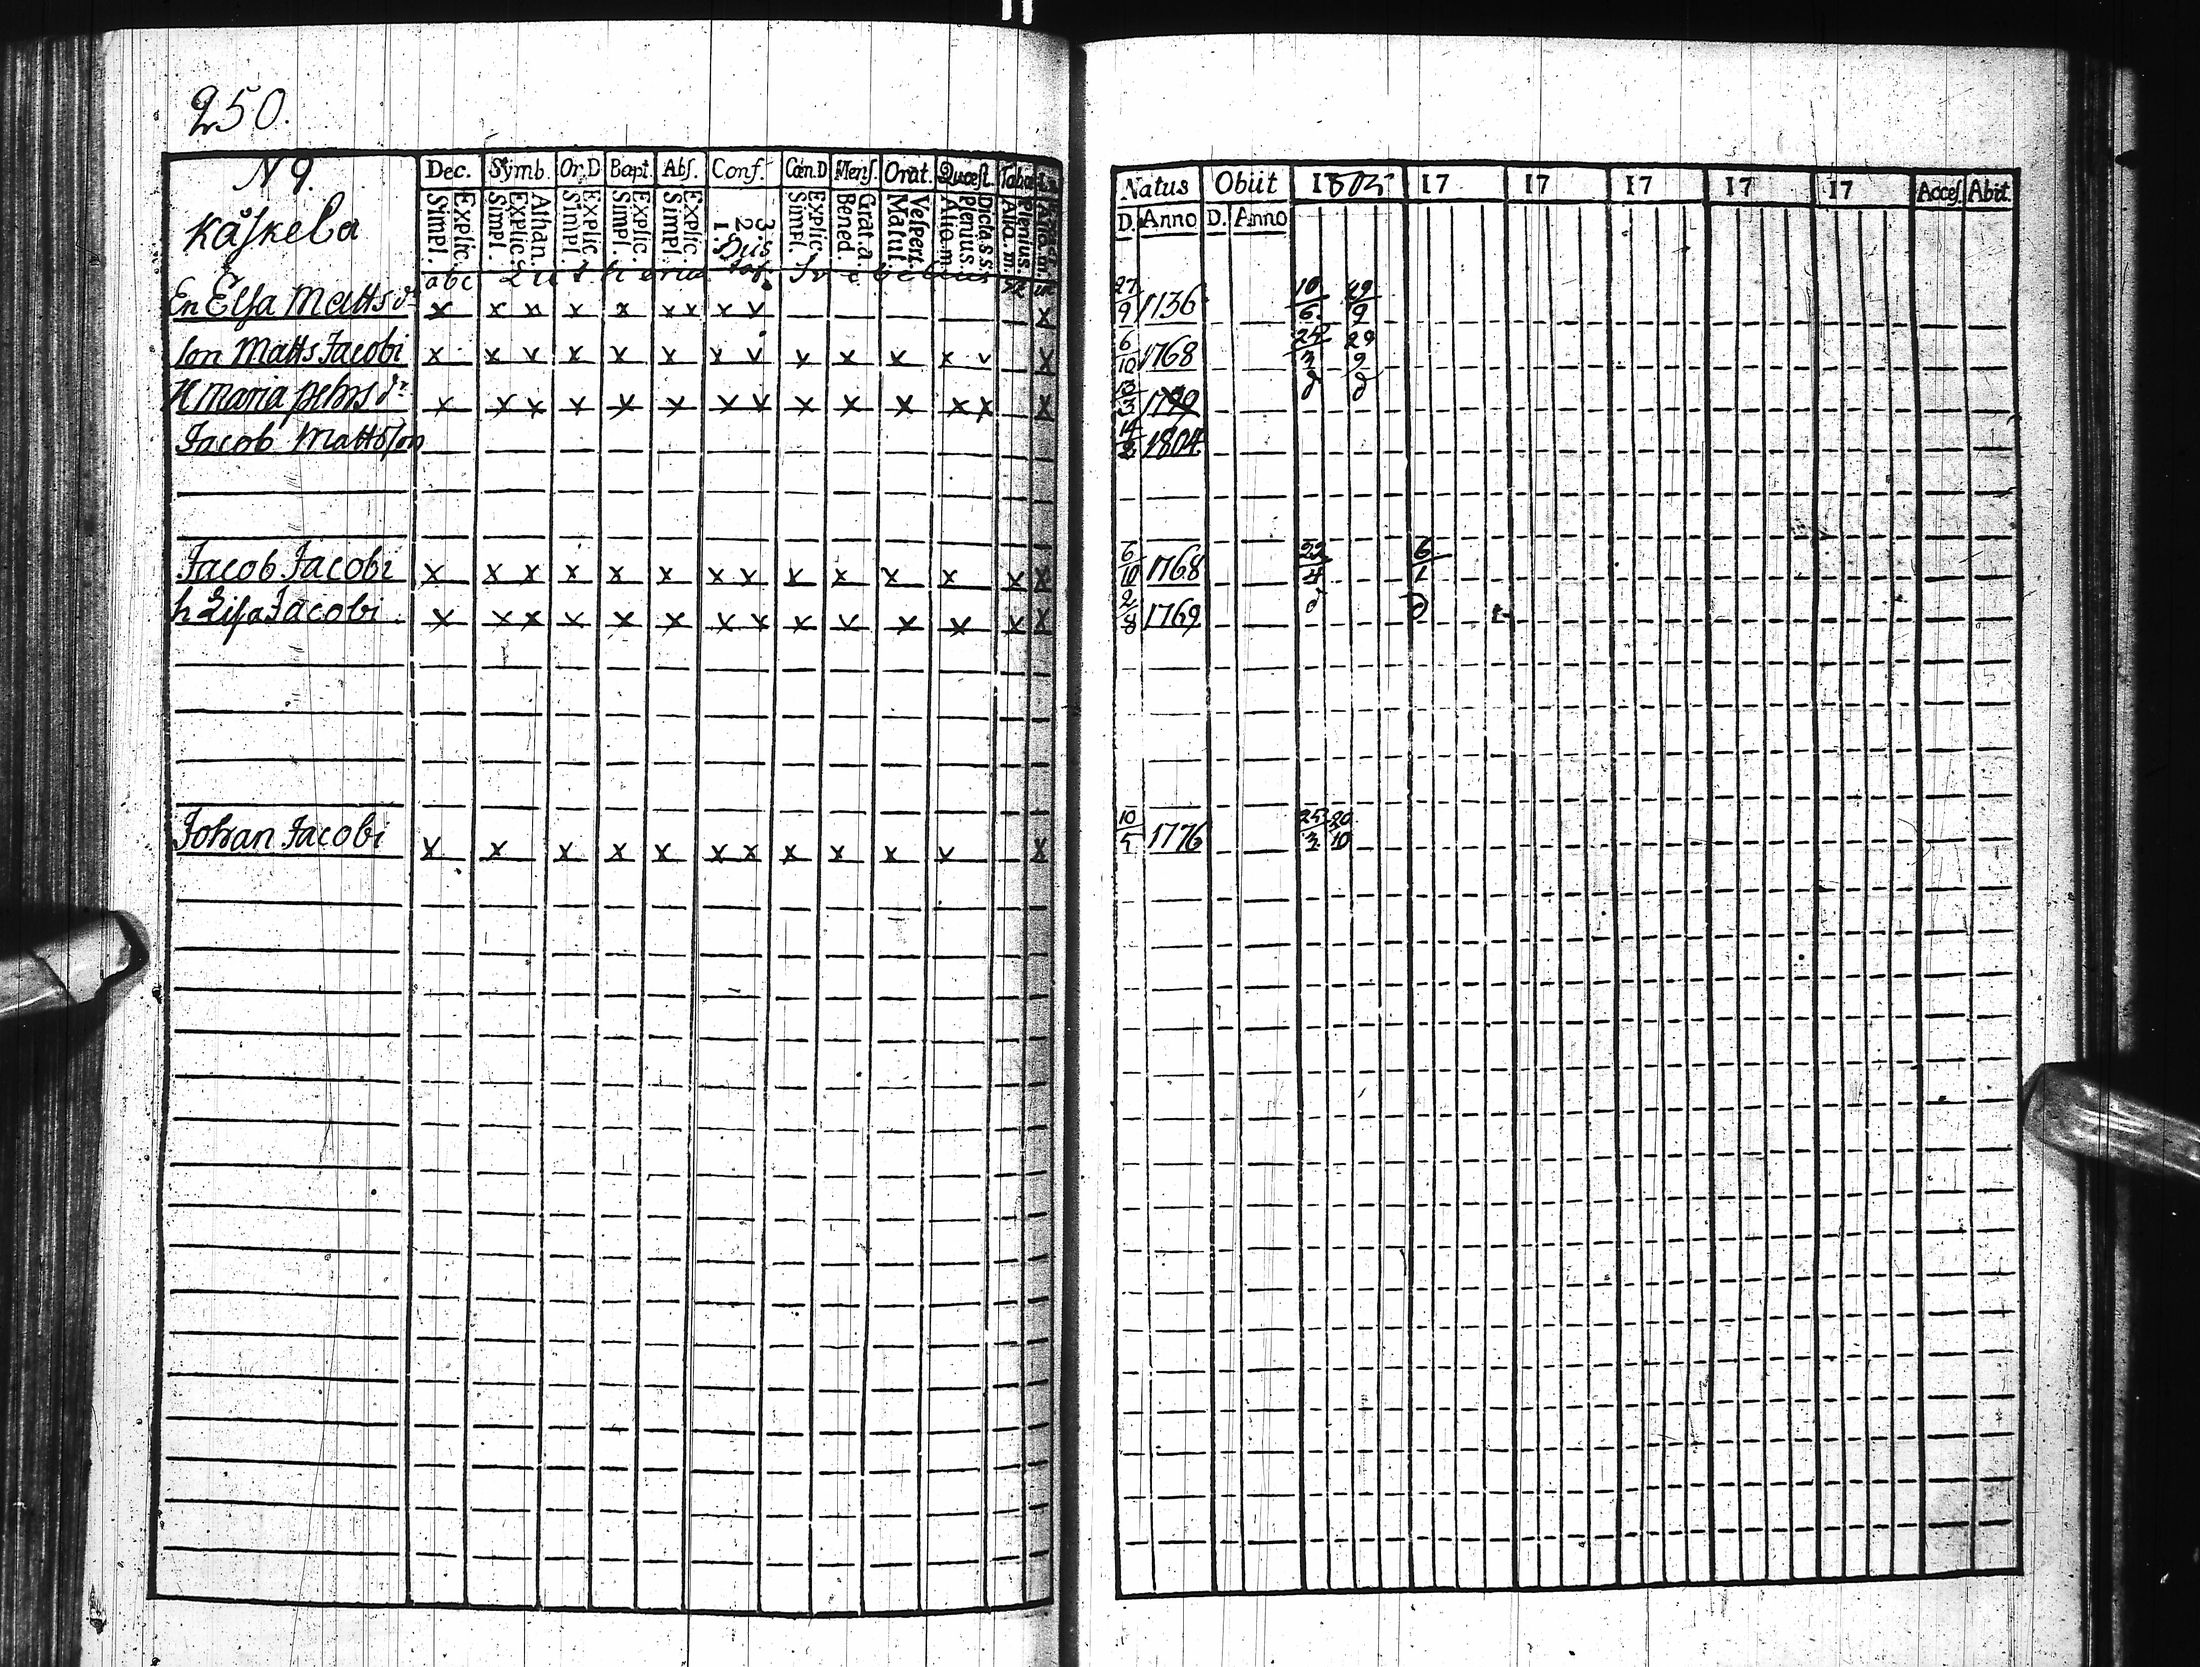 250.
N 9.
Kåskela
Dec. Symb. Or.D Bapt. Abs. Conf. Cœn.D Mens. Orat. Quæst. Taba
Explic. Simpl. Athan. Explic. Simpl. Explic. Simpl. Explic. Simpl. Explic. Simpl. 3. 2. 1. Explic. Simpl. Grat. a. Bened. Vespert. Matut. Dicta. s. s. Plenius. Aliq. m. Plenius. Aliq. m.
abc
En Elsa Matts dr x x x x x x x x x x
son Matts Jacobi x x x x x x x x x x x x x x
H Maria pehrs dr x x x x x x x x x x x x x x
Jacob Mattsson
Jacob Jacobi x x x x x x x x x x x x x x
h Lisa Jacobi x x x x x x x x x x x x x x
Johan Jacobi x x x x x x x x x x x x
Natus Obiit 1805 17 17 17 17 17 Acces. Abit.
D. Anno D. Anno
27/9 1736 10/6 29/9
6/10 1768 25/3 29/9
13/3 1799 d d
14/2 1804
6/10 1768 22/4 6/1
2/8 1769 d d
10/5 1776 25/3 20/10